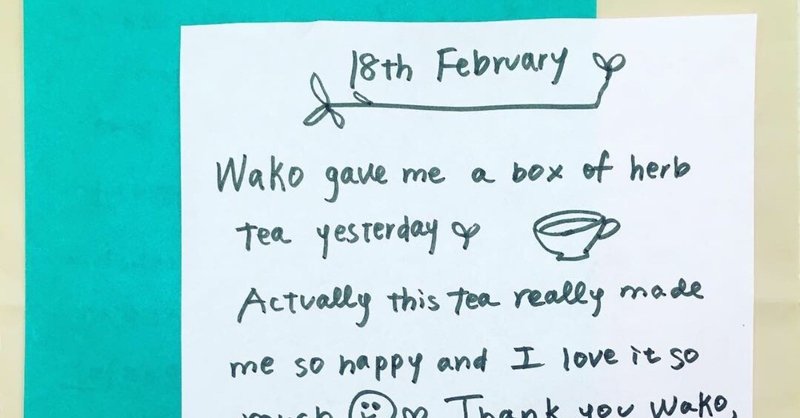 18th February
Wako gave me a box of herb
tea yesterday
Actually this tea really made
me so happy and I love it so
much Thank you Wako.